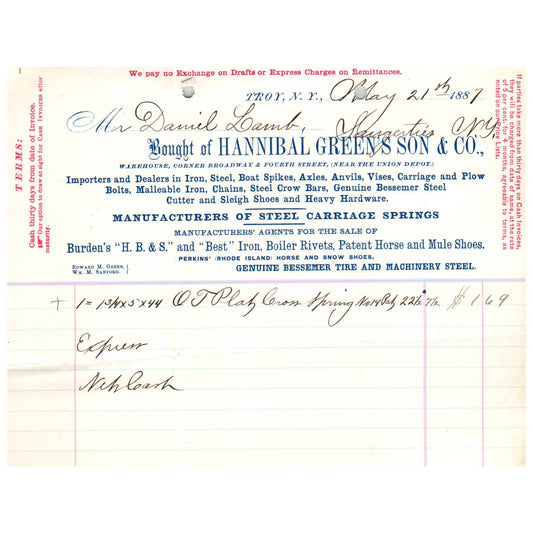 We pay no Exchange on Drafts or Express Charges on Remittances.
TROY, N.Y., May 21th 1887
Mr Daniel Lamb, Saugerties N.Y.
Bought of HANNIBAL GREEN'S SON & CO.,
WAREHOUSE, CORNER BROADWAY & FOURTH STREET, (NEAR THE UNION DEPOT.)
Importers and Dealers in Iron, Steel, Boat Spikes, Axles, Anvils, Vises, Carriage and Plow
Bolts, Malleable Iron, Chains, Steel Crow Bars, Genuine Bessemer Steel
Cutter and Sleigh Shoes and Heavy Hardware.
MANUFACTURERS OF STEEL CARRIAGE SPRINGS
MANUFACTURERS' AGENTS FOR THE SALE OF
Burden's "H. B. & S." and "Best" Iron, Boiler Rivets, Patent Horse and Mule Shoes.
PERKINS' (RHODE ISLAND) HORSE AND SNOW SHOES.
EDWARD M. GREEN,
WM. M. SANFORD.
GENUINE BESSEMER TIRE AND MACHINERY STEEL.
TERMS:
Cash thirty days from date of Invoice.
☞ Our option to draw at sight for CASH INVOICES after
maturity.
If parties take more than thirty days on Cash Invoices,
they will be charged from date of same, at the rate
of 5 per cent. for months, agreeable to terms, as
noted on our Price Lists.
+ 1 = 1 3/4 x 5 x 44 O T Plat Cross Spring 22 1/2 7 1/2 $ 1 69
Express
Net Cash